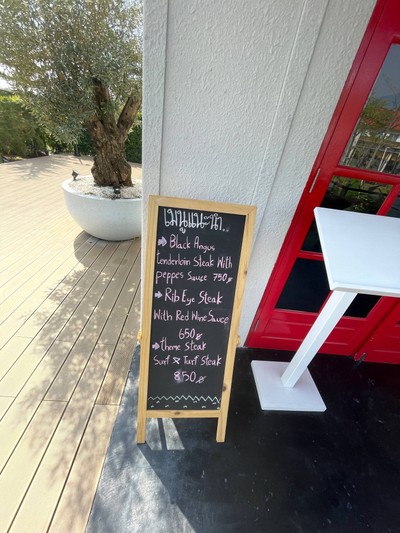 เมนูแนะนำ..
→ Black Angus
tenderloin Steak With
peppes Sauce 750.-
→ Rib Eye Steak
With Red Wine Sauce
650.-
→ theme Steak
Surf & Turf Steak
850.-